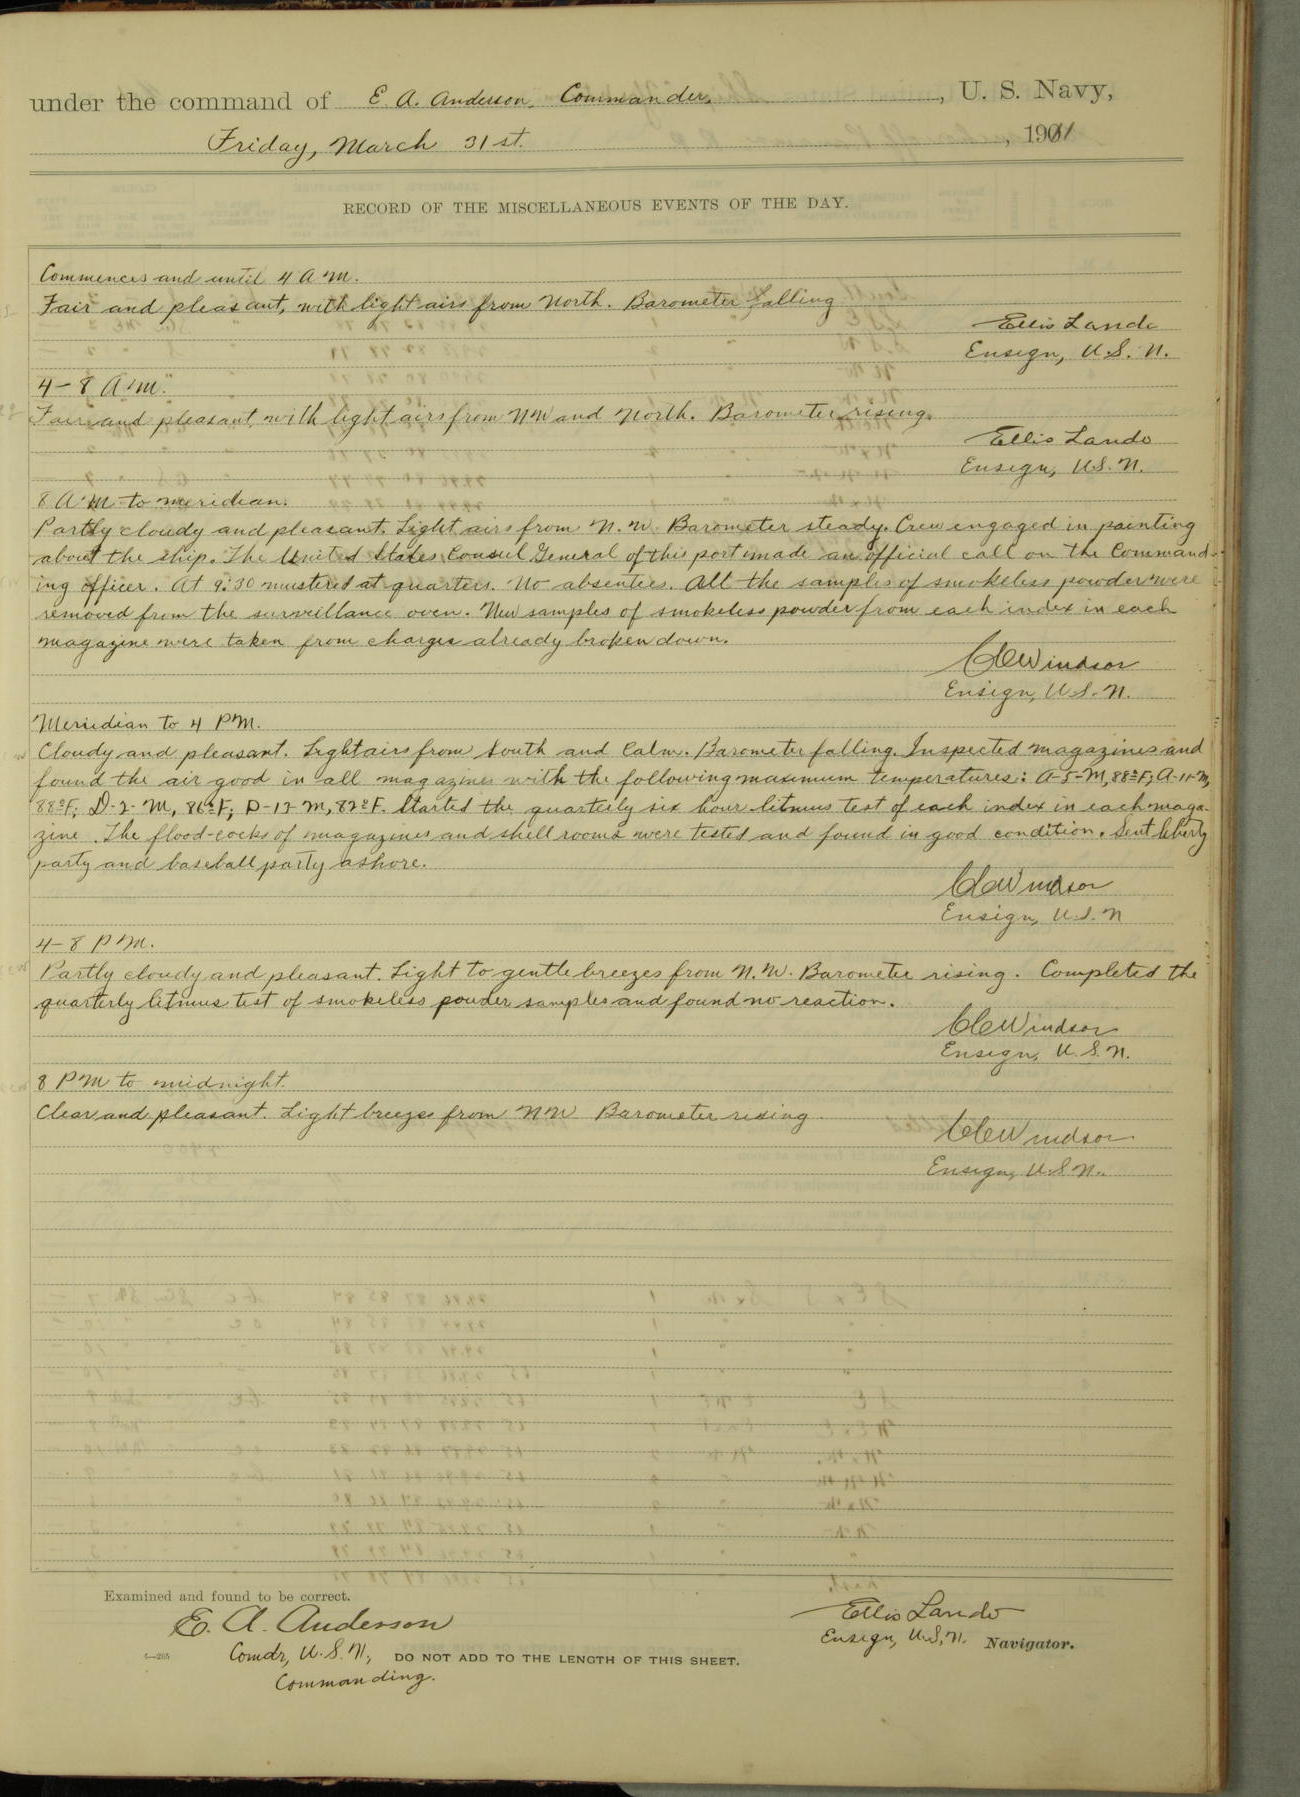 under the command of E. A. Anderson, Commander, , U. S. Navy,
Friday, March 31st. , 1911
RECORD OF THE MISCELLANEOUS EVENTS OF THE DAY.
Commences and until 4 A M.
Fair and pleasant, with light airs from North. Barometer falling
Ellis Lando
Ensign, U. S. N.
4 – 8 A M.
Fair and pleasant, with light airs from NW and North. Barometer rising.
Ellis Lando
Ensign, U.S. N.
8 A M to meridian.
Partly cloudy and pleasant. Light airs from N. W. Barometer steady. Crew engaged in painting
about the ship. The United States Consul General of this port made an official call on the Command-
ing officer. At 9:30 mustered at quarters. No absentees. All the samples of smokeless powder were
removed from the surveillance oven. New samples of smokeless powder from each index in each
magazine were taken from charges already broken down.
Windsor
Ensign, U. S. N.
Meridian to 4 P M.
Cloudy and pleasant. Light airs from South and Calm. Barometer falling. Inspected magazines and
found the air good in all magazines with the following maximum temperatures: A-5-M, 88° F; A-11-M,
88° F; D-2-M, 86° F; D-12-M, 82° F. Started the quarterly six hour litmus test of each index in each maga-
zine. The flood-cocks of magazines and shell rooms were tested and found in good condition. Sent liberty
party and baseball party ashore.
Windsor
Ensign, U. S. N
4 – 8 P M.
Partly cloudy and pleasant. Light to gentle breezes from N. W. Barometer rising. Completed the
quarterly litmus test of smokeless powder samples and found no reaction.
Windsor
Ensign, U. S. N.
8 P M to midnight.
Clear and pleasant. Light breezes from NW Barometer rising
Windsor
Ensign, U. S. N.
Examined and found to be correct.
E. A. Anderson
Comdr, U. S. N.,
Commanding.
Ellis Lando
Ensign, U. S. N. Navigator.
DO NOT ADD TO THE LENGTH OF THIS SHEET.